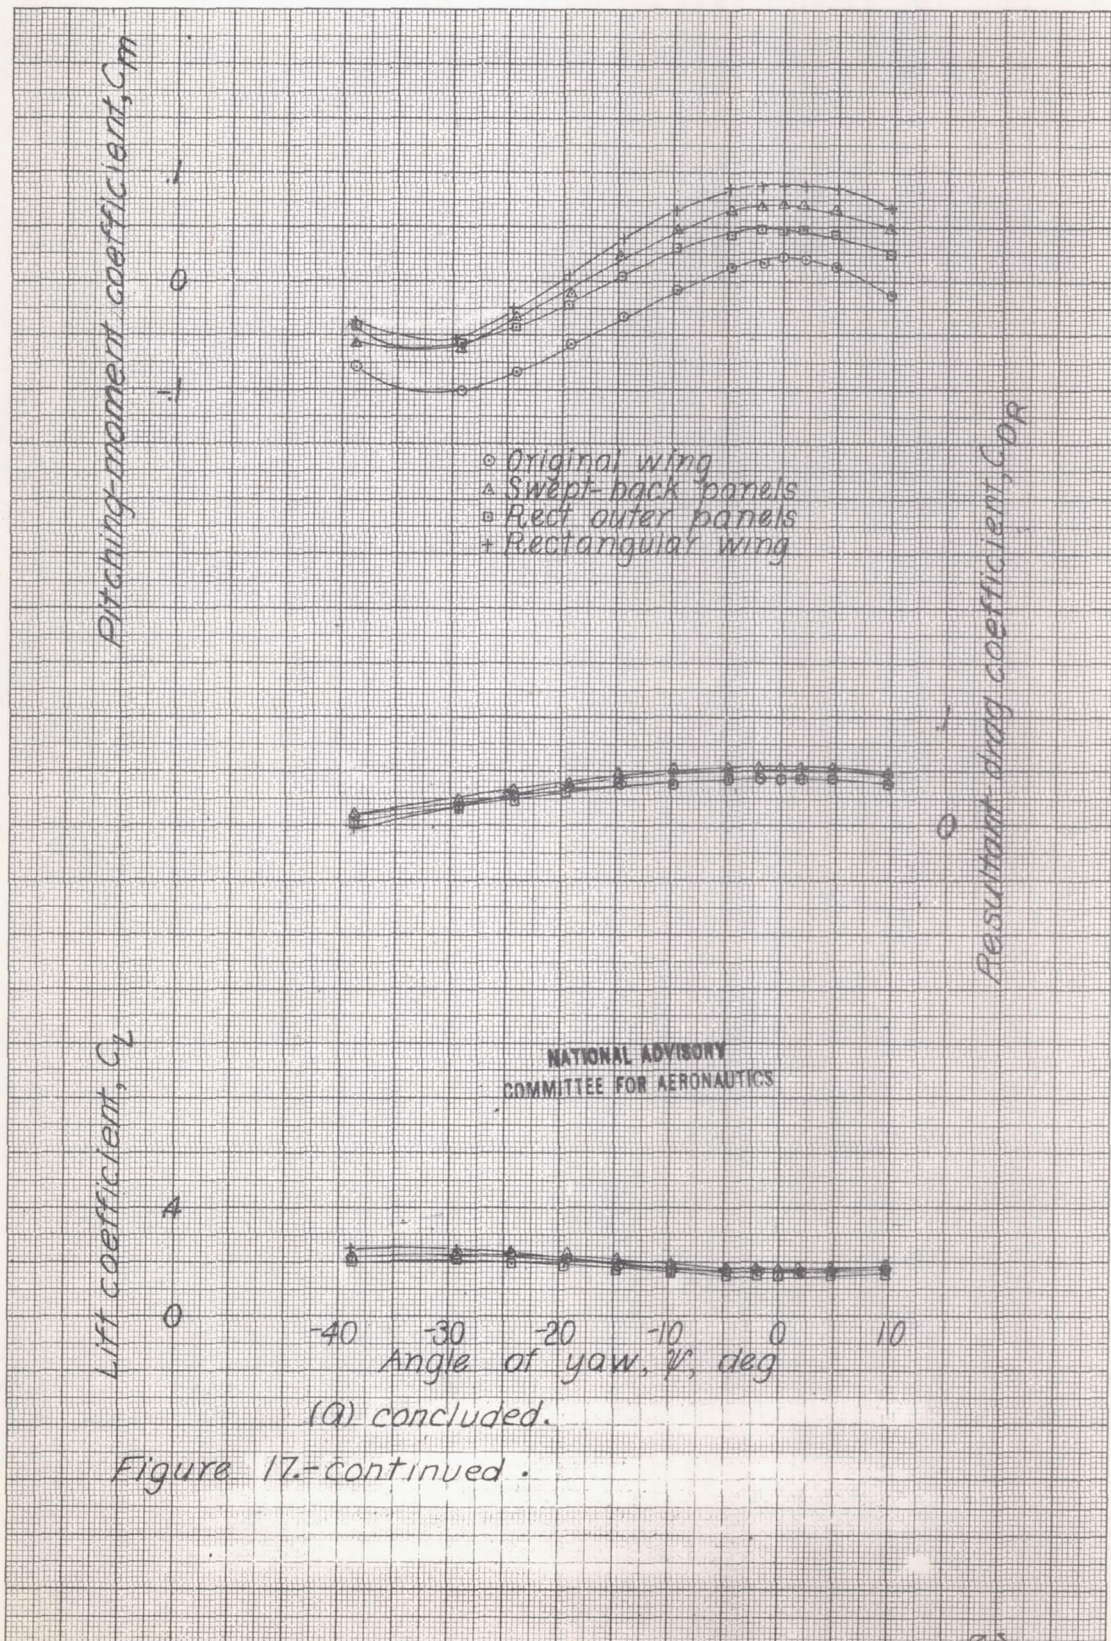 Pitching-moment coefficient, Cm
.1
0
-.1
○ Original wing
△ Swept-back panels
□ Rect outer panels
+ Rectangular wing
Resultant-drag coefficient, CDR
.1
0
NATIONAL ADVISORY
COMMITTEE FOR AERONAUTICS
Lift coefficient, CL
.4
0
-40 -30 -20 -10 0 10
Angle of yaw, ψ, deg
(a) concluded.
Figure 17.-continued.